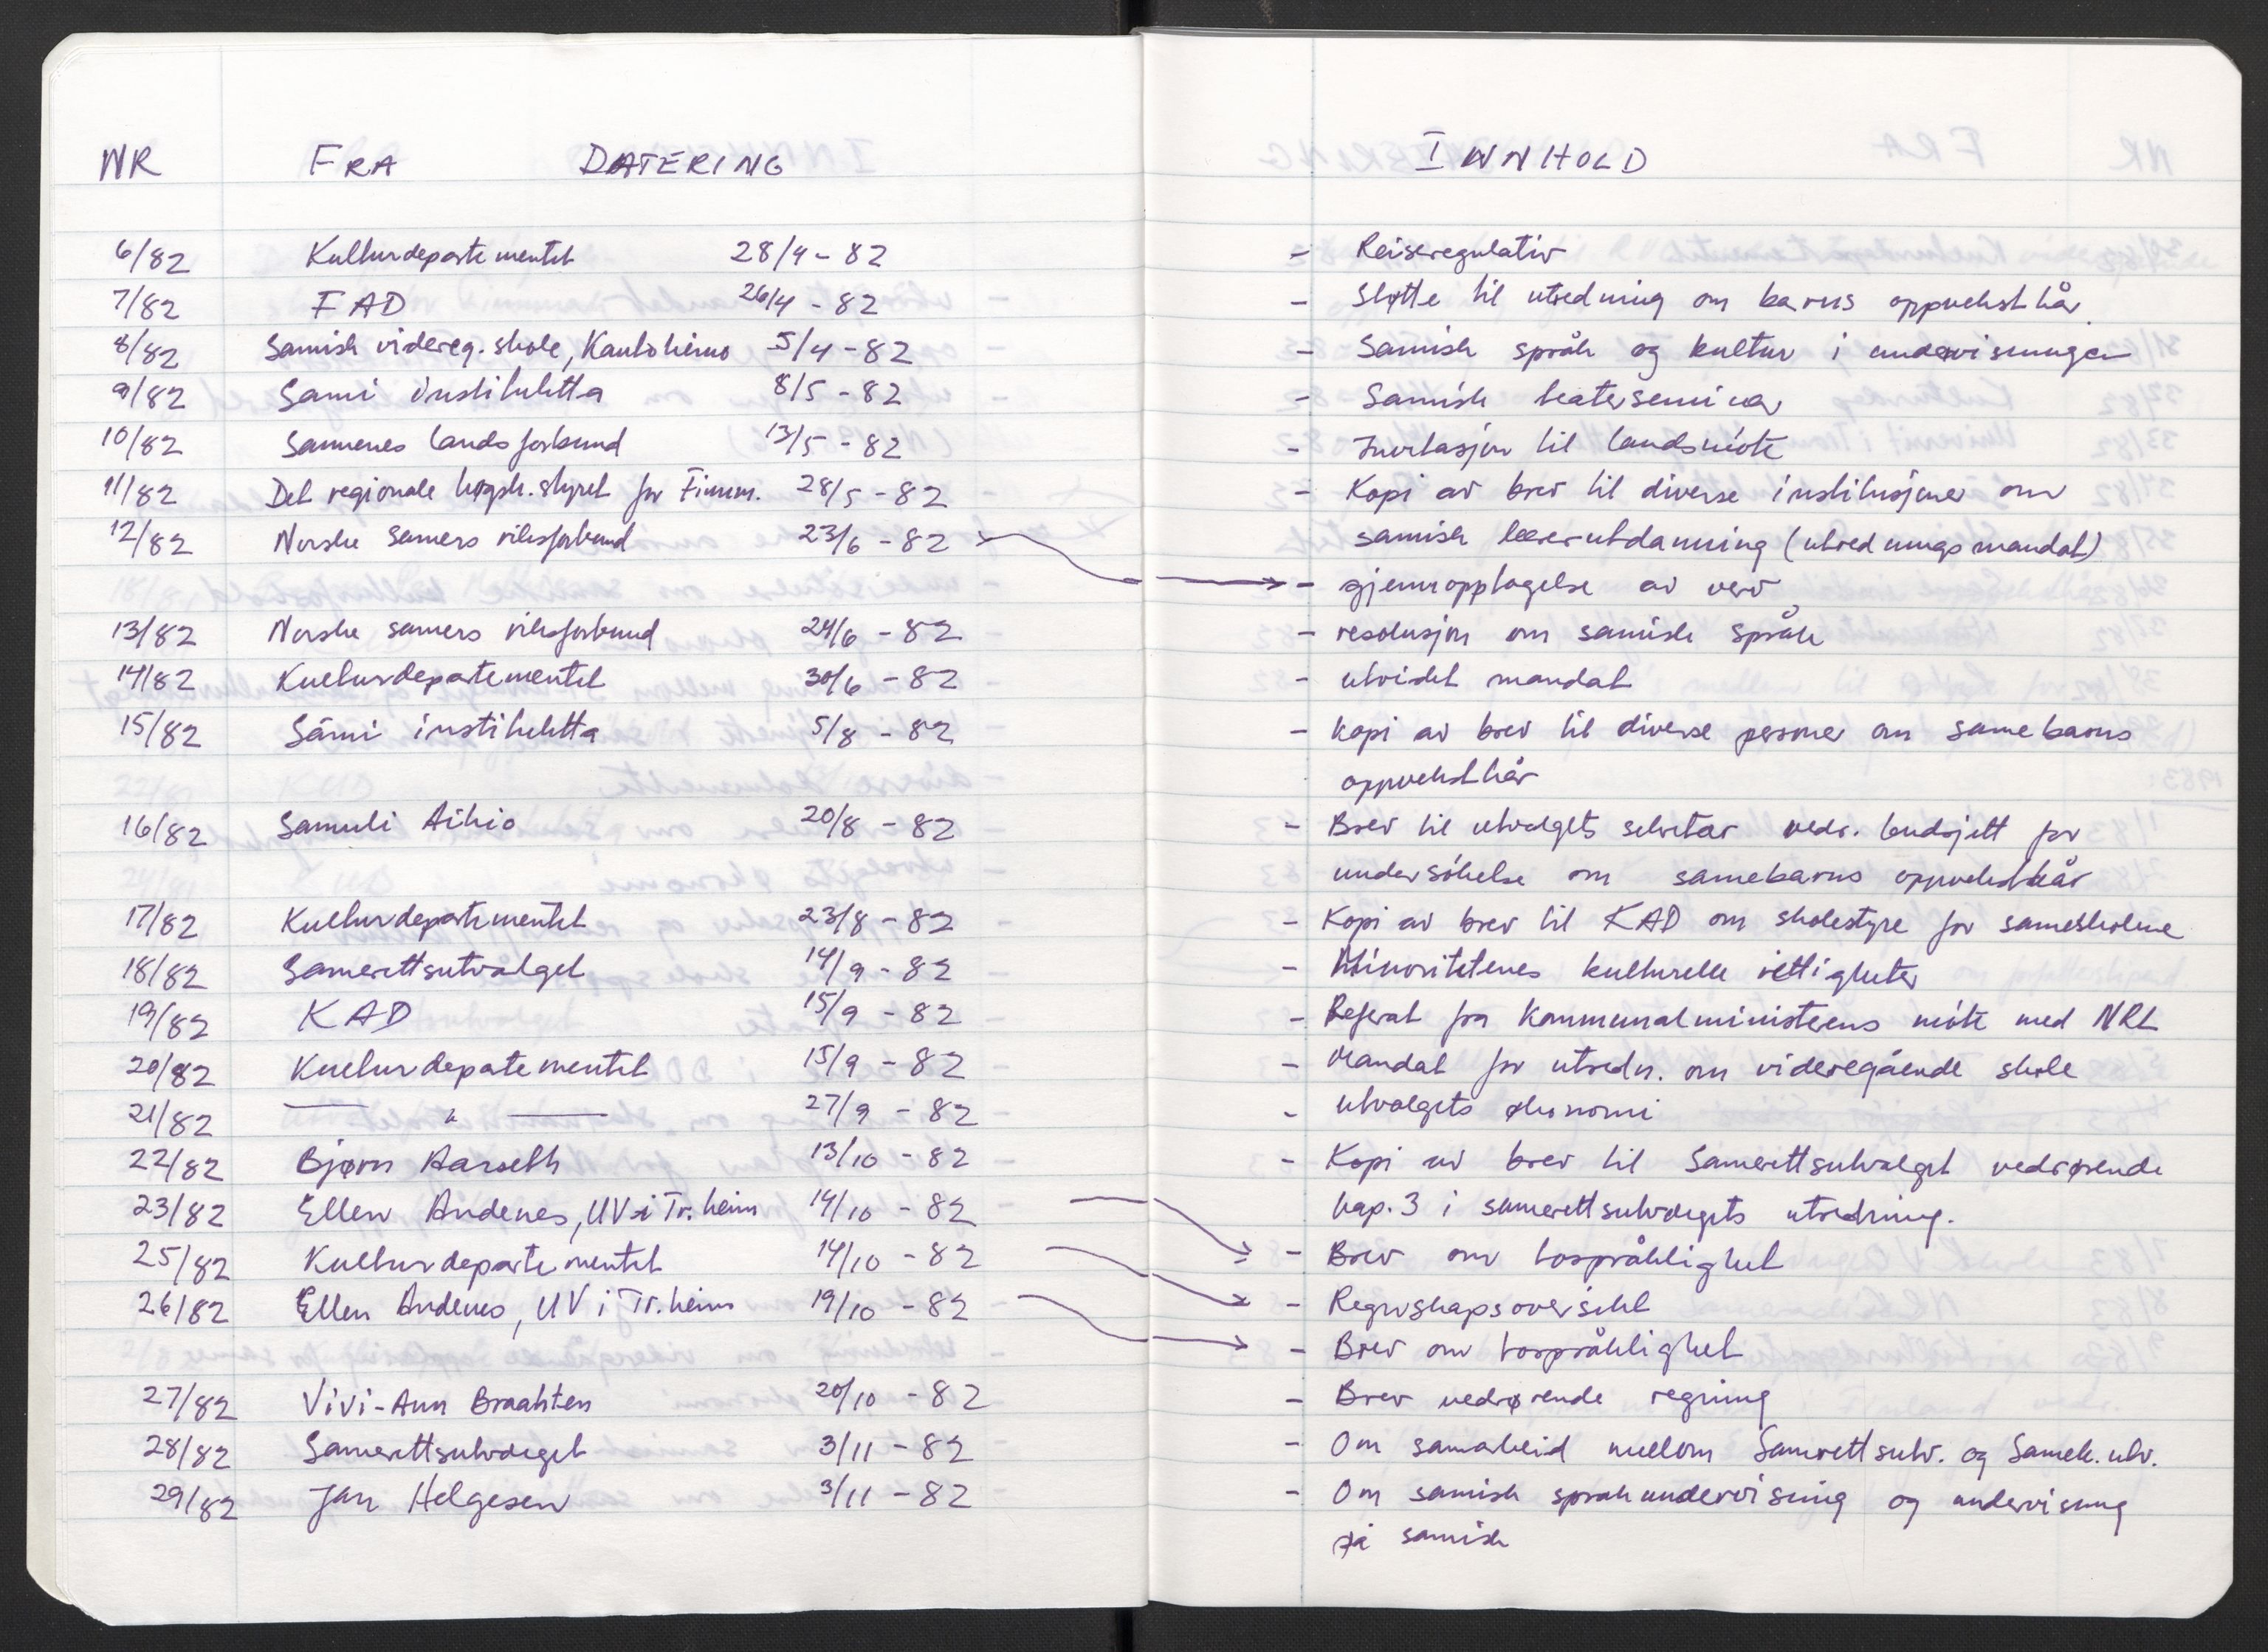 NR FRA DATERING INNHOLD
6/82 Kulturdepartementet 28/4 - 82 - Reiseregulativ
7/82 FAD 26/4 - 82 - Støtte til utredning om barns oppvekstkår.
8/82 Samisk videreg. skole, Kautokeino 5/4 - 82 - Samisk språk og kultur i undervisningen
9/82 Sami instituhtta 8/5 - 82 - Samisk teaterseminar
10/82 Samenes landsforbund 13/5 - 82 - Invitasjon til landsmöte
11/82 Det regionale høgsk. styret for Finnm. 28/5 - 82 - Kopi av brev til diverse institusjoner om
12/82 Norske samers riksforbund 23/6 - 82 samisk lærerutdanning (utredningsmandat)
- gjenopptagelse av verv
13/82 Norske samers riksforbund 24/6 - 82 - resolusjon om samisk språk
14/82 Kulturdepartementet 30/6 - 82 - utvidet mandat
15/82 Sámi instituhtta 5/8 - 82 - kopi av brev til diverse personer om samebarns
oppvekstkår
16/82 Samuli Aikio 20/8 - 82 - Brev til utvalgets sekretær vedr. budsjett for
undersökelse om samebarns oppvekstkår
17/82 Kulturdepartementet 23/8 - 82 - Kopi av brev til KAD om skolestyre for sameskolene
18/82 Samerettsutvalget 14/9 - 82 - Minoritetenes kulturelle rettigheter
19/82 KAD 15/9 - 82 - Referat fra kommunalministerens möte med NRL
20/82 Kulturdepartementet 15/9 - 82 - Mandat for utredn. om videregående skole
21/82 — " — 27/9 - 82 - Utvalgets økonomi
22/82 Bjørn Aarseth 13/10 - 82 - Kopi av brev til Samerettsutvalget vedrørende
23/82 Ellen Andenes, UV i Tr.heim 14/10 - 82 kap. 3 i samerettsutvalgets utredning.
25/82 Kulturdepartementet 14/10 - 82 - Brev om tospråklighet
26/82 Ellen Andenes, UV i Tr.heim 19/10 - 82 - Regnskapsoversikt
- Brev om tospråklighet
27/82 Vivi-Ann Braahten 20/10 - 82 - Brev vedrørende regning
28/82 Samerettsutvalget 3/11 - 82 - Om samarbeid mellom Samerettsutv. og Samek. utv.
29/82 Jan Helgesen 3/11 - 82 - Om samisk språkundervisning og undervisning
på samisk